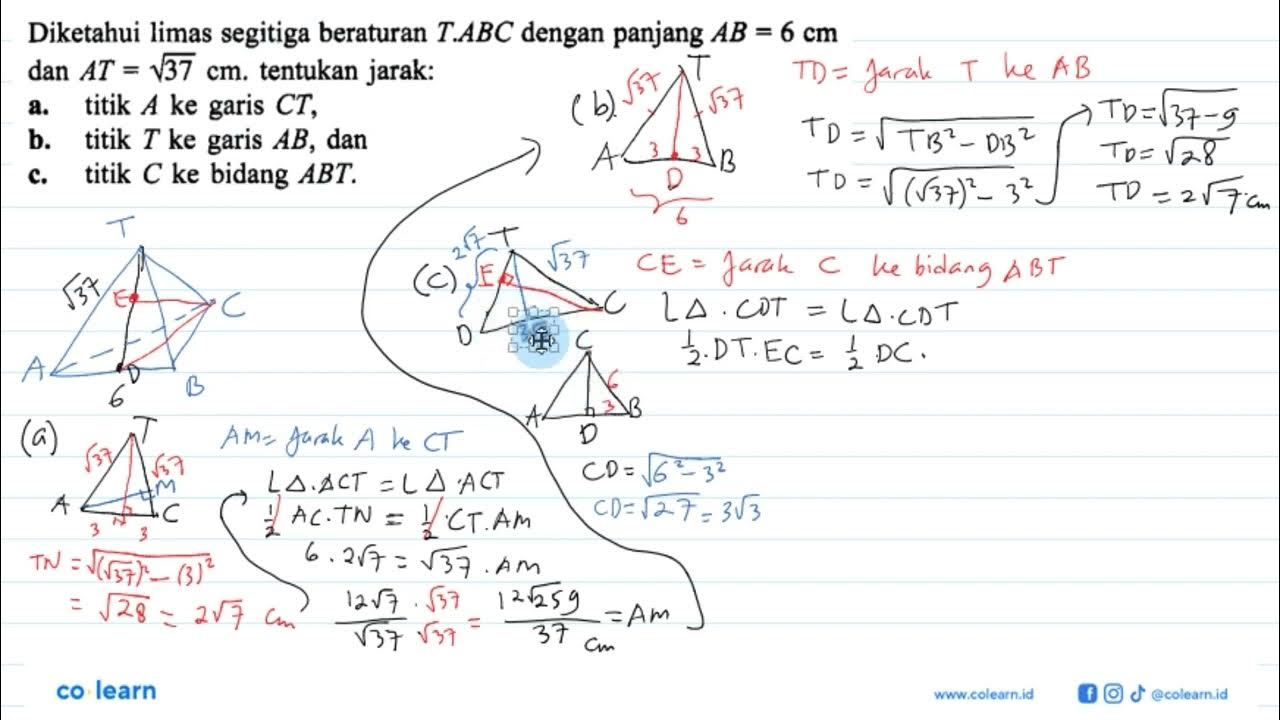 Diketahui limas segitiga beraturan T.ABC dengan panjang AB = 6 cm
dan AT = √37 cm. tentukan jarak:
a. titik A ke garis CT,
b. titik T ke garis AB, dan
c. titik C ke bidang ABT.
T
√37
E
C
A
D
B
6
(b).
T
√37
√37
A
3
3
B
D
6
TD = Jarak T ke AB
TD = √(TB² - DB²)
TD = √((√37)² - 3²)
TD = √(37 - 9)
TD = √28
TD = 2√7 cm
(c)
T
2√7
E
√37
C
D
CE = Jarak C ke bidang ABT
L∆.CDT = L∆.CDT
½.DT.EC = ½ DC.
C
6
A
3
B
D
CD = √(6² - 3²)
CD = √27 = 3√3
(a)
T
√37
√37
M
A
C
3
N
3
TN = √((√37)² - (3)²)
= √28 = 2√7 cm
AM = Jarak A ke CT
L∆.ACT = L∆.ACT
½ AC.TN = ½.CT.AM
6.2√7 = √37.AM
12√7/√37 . √37/√37 = 12√259/37 cm = AM
co learn
www.colearn.id
@colearn.id